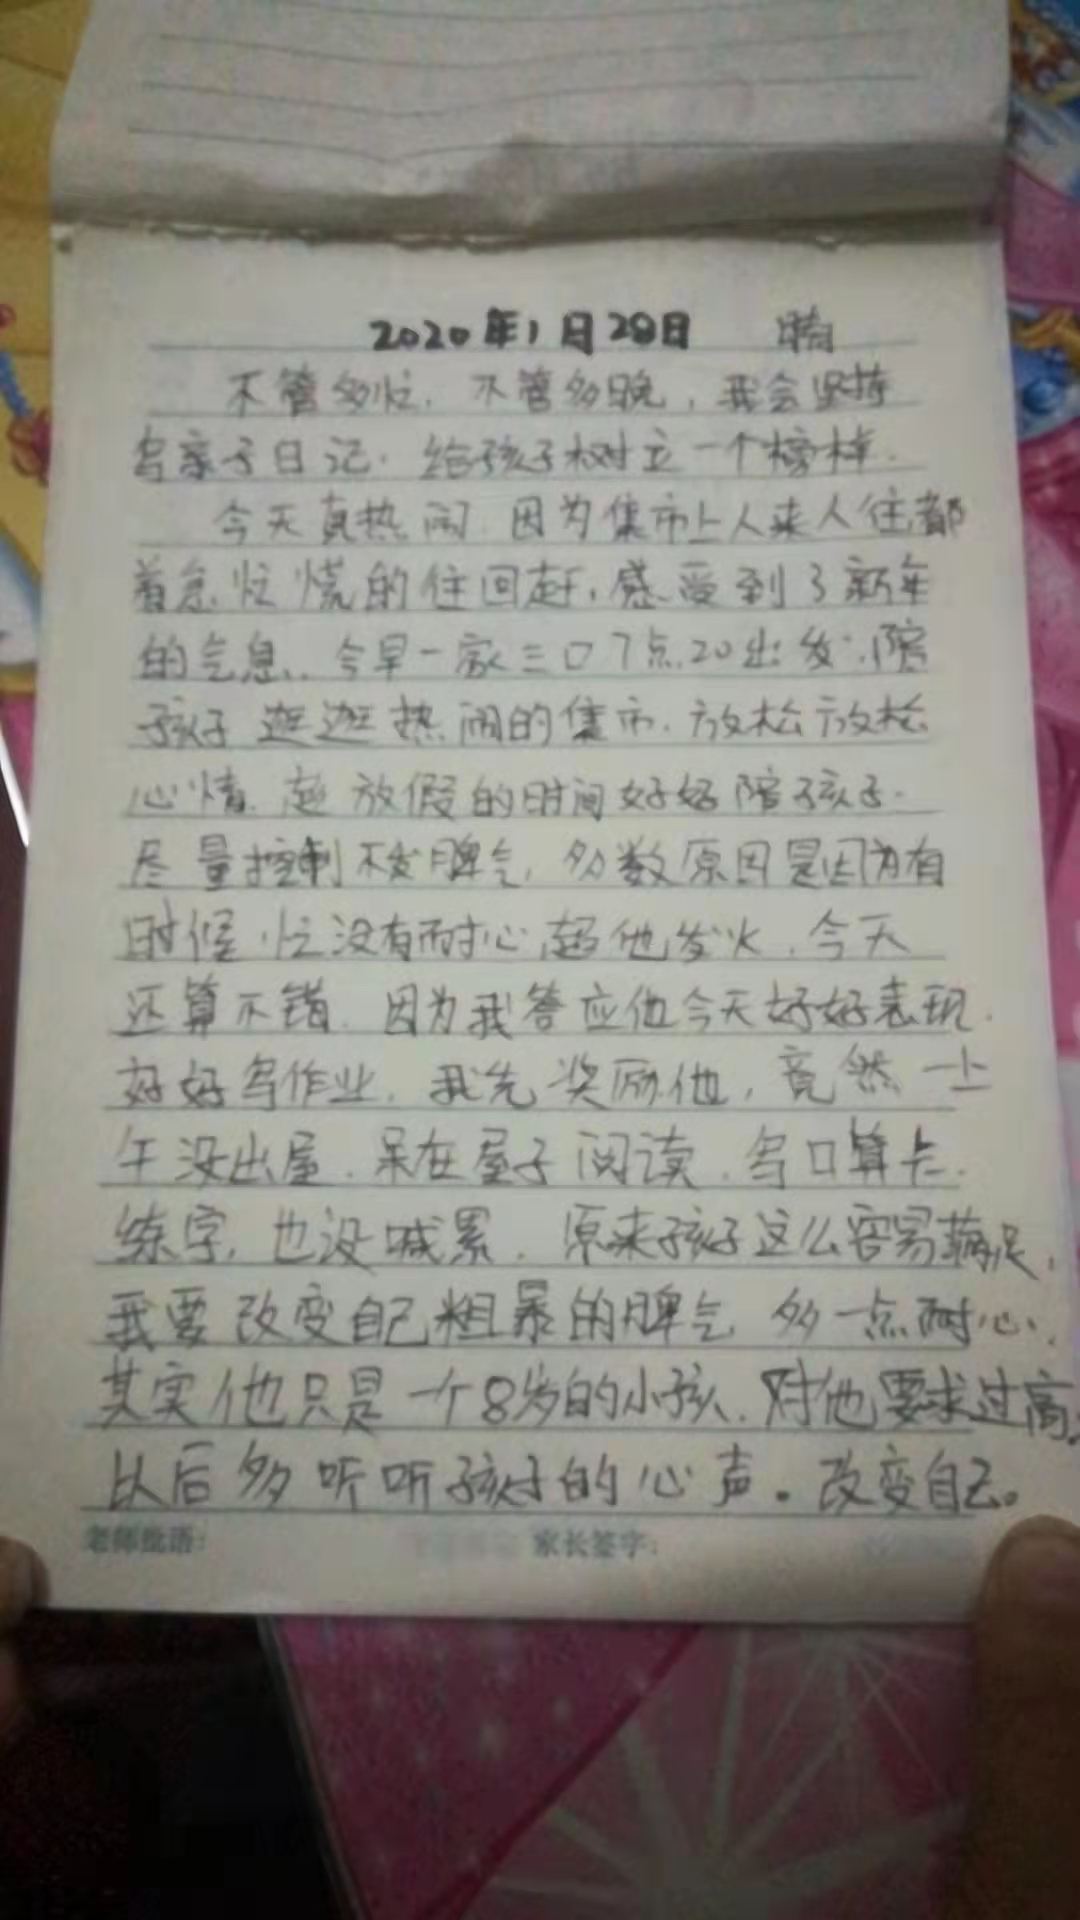 2020年1月28日 晴
不管多忙.不管多晚,我会坚持
写亲子日记.给孩子树立一个榜样.
今天真热闹.因为集市上人来人往都
着急忙慌的往回赶,感受到了新年
的气息..今早一家三口7点20出发.陪
孩子逛逛热闹的集市.放松放松
心情.趁放假的时间好好陪孩子.
尽量控制不发脾气,多数原因是因为有
时候忙没有耐心,超他发火.今天
还算不错.因为我答应他今天好好表现.
好好写作业.我先奖励他,竟然一上
午没出屋.呆在屋子阅读.写口算卡.
练字,也没喊累.原来孩子这么容易满足,
我要改变自己粗暴的脾气 多一点耐心.
其实他只是一个8岁的小孩.对他要求过高,
以后多听听孩子的心声。改变自己。
老师批语: 家长签字: